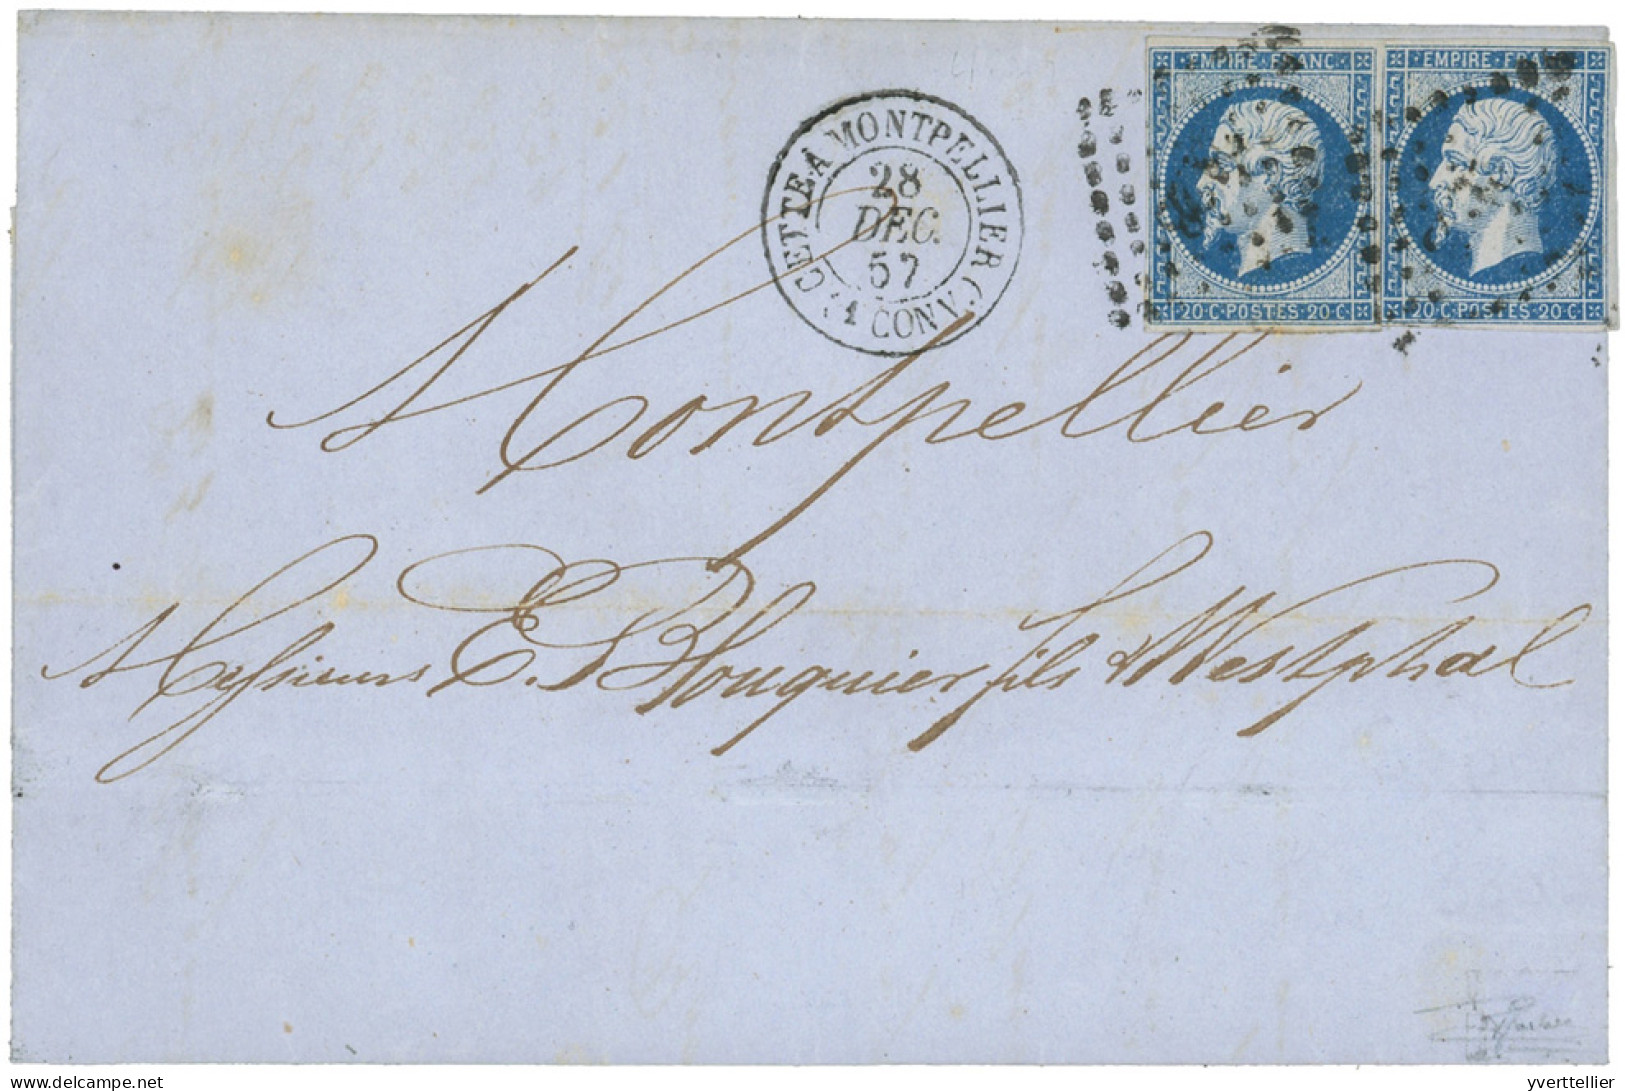 EMPIRE FRANC
EMPIRE F
CETTE A MONTPELLIER (1 CONV)
28
DEC.
57
20·C·POSTES·20·C
20·C·POSTES·20·C
Montpellier
Messieurs E. Bouquier fils & Westphal
www.delcampe.net
yverttellier